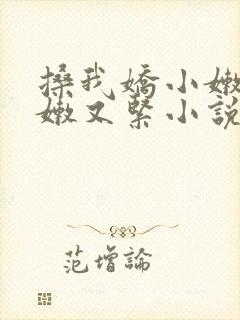 搡我嬌小嫩
嫩又緊小說
范增論